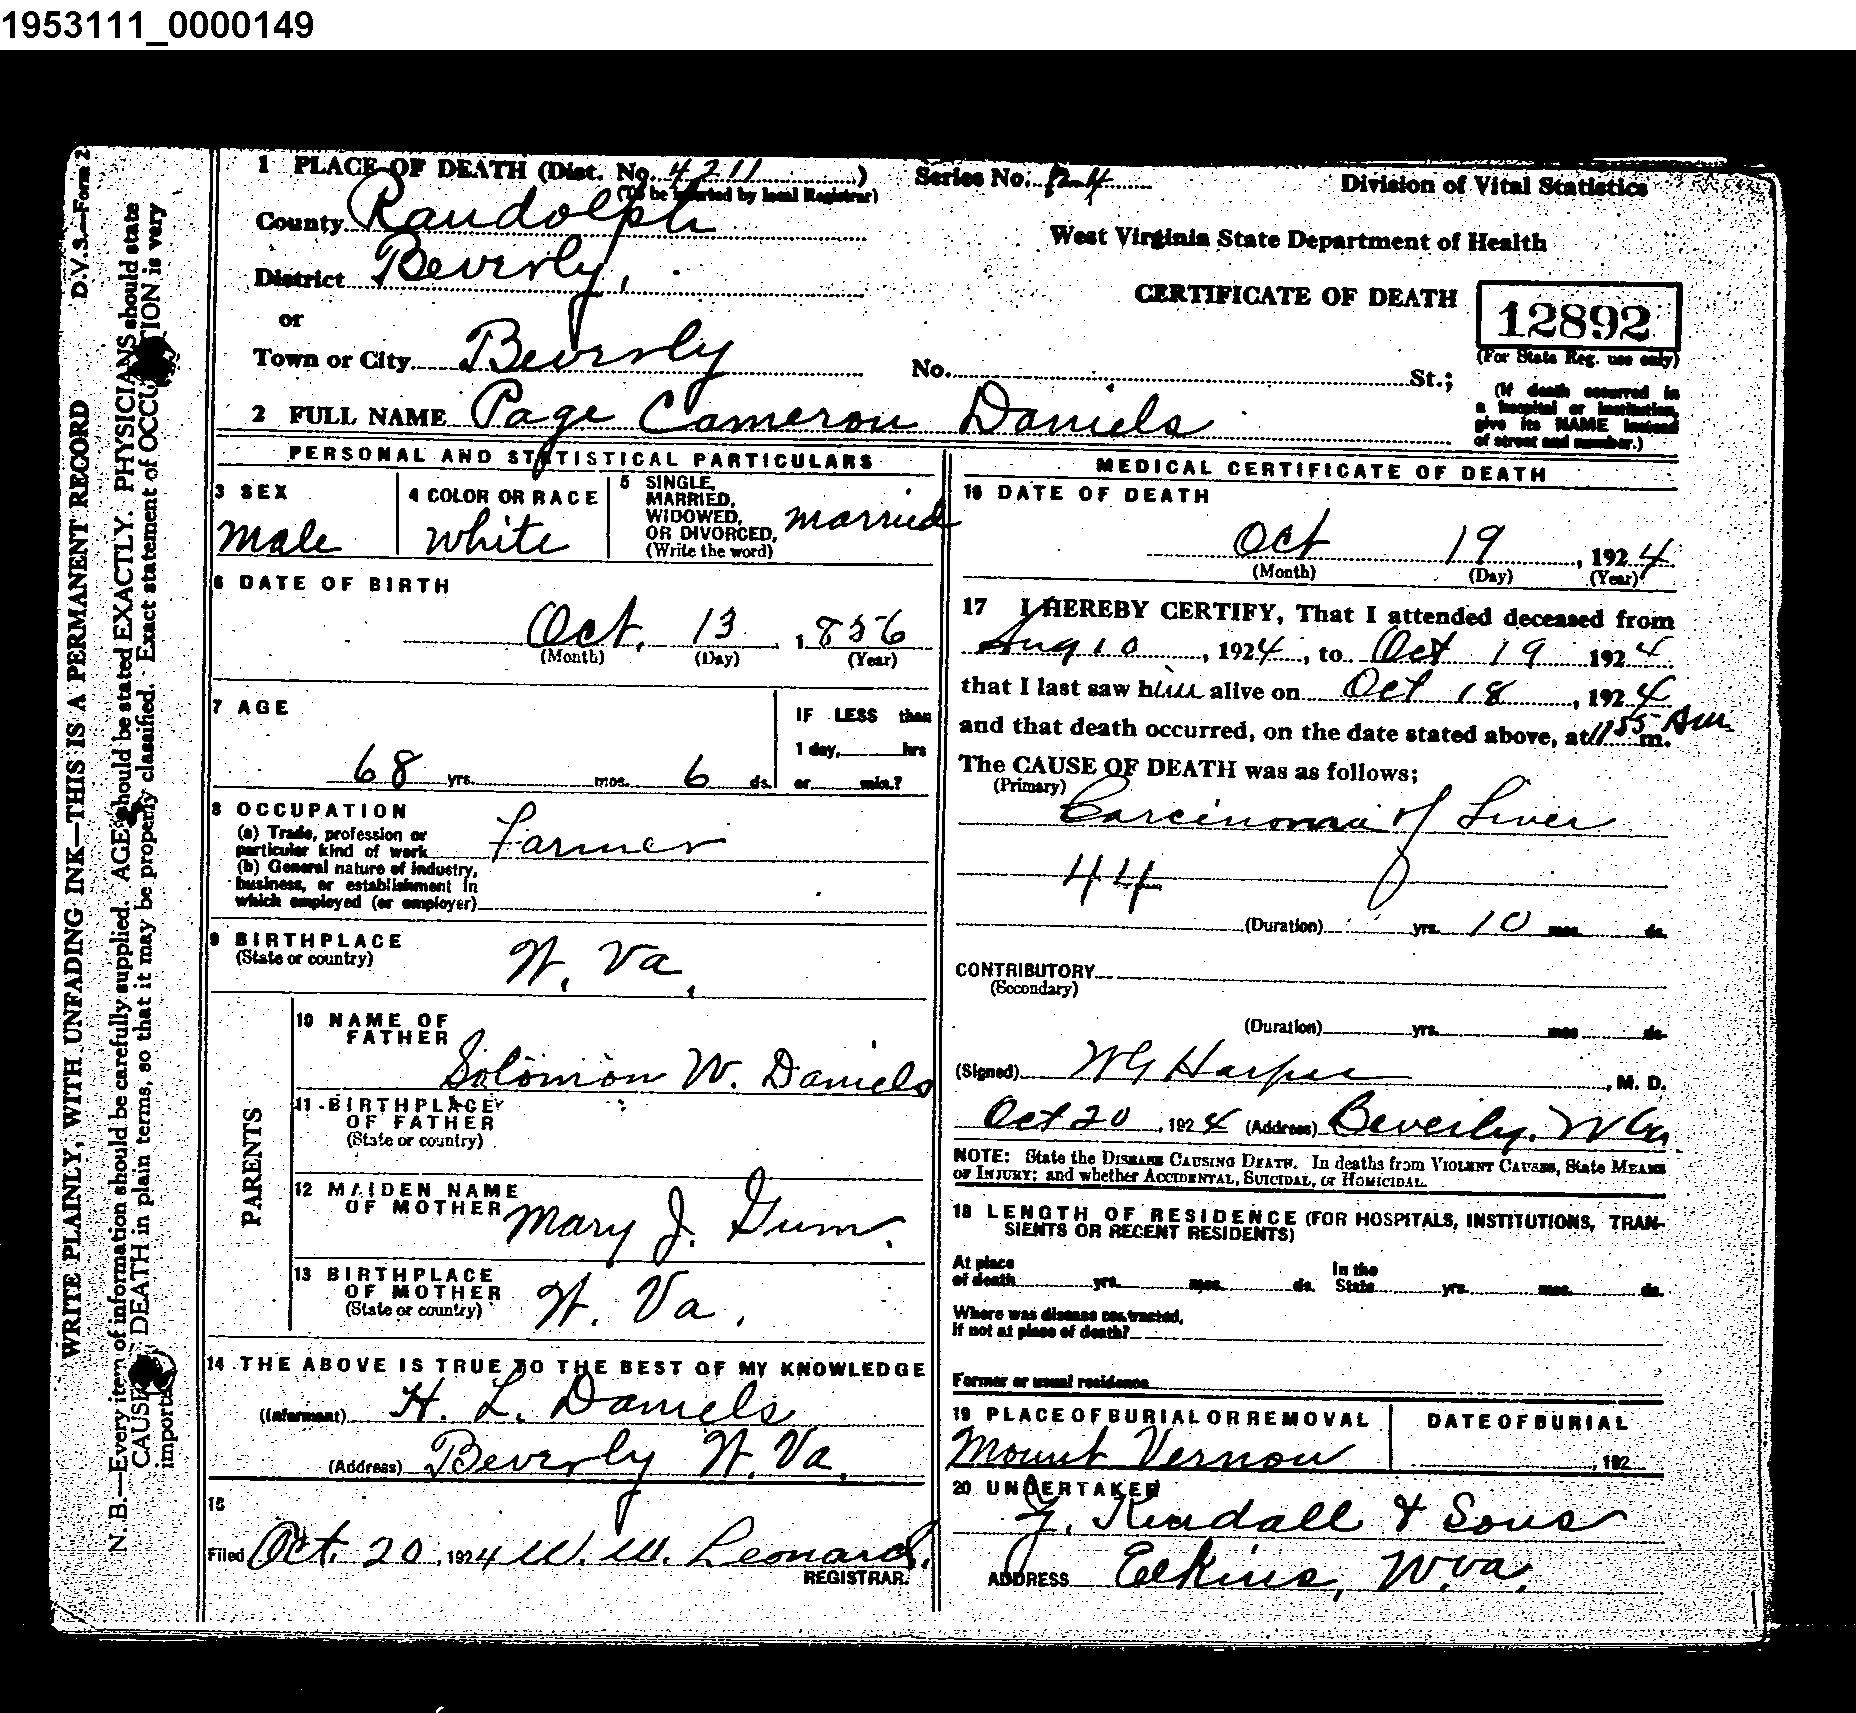 1953111_0000149
D.V.S.—Form 2
WRITE PLAINLY, WITH UNFADING INK—THIS IS A PERMANENT RECORD
N. B.—Every item of information should be carefully supplied. AGE should be stated EXACTLY. PHYSICIANS should state
CAUSE DEATH in plain terms, so that it may be properly classified. Exact statement of OCCUPATION is very
1 PLACE OF DEATH (Dist. No. 4211)
(To be inserted by local Registrar)
Series No.
Division of Vital Statistics
County Randolph
West Virginia State Department of Health
District Beverly,
CERTIFICATE OF DEATH
12892
(For State Reg. use only)
or
Town or City Beverly
No. St.;
(If death occurred in
a hospital or institution,
give its NAME instead
of street and number.)
2 FULL NAME Page Cameron Daniels
PERSONAL AND STATISTICAL PARTICULARS
3 SEX
Male
4 COLOR OR RACE
White
5 SINGLE,
MARRIED,
WIDOWED,
OR DIVORCED,
(Write the word)
married
6 DATE OF BIRTH
Oct. 13, 1856
(Month) (Day) (Year)
7 AGE
68 yrs. mos. 6 ds.
IF LESS than
1 day, hrs
or min.?
8 OCCUPATION
(a) Trade, profession or
particular kind of work
Farmer
(b) General nature of industry,
business, or establishment in
which employed (or employer)
9 BIRTHPLACE
(State or country)
W. Va.
PARENTS
10 NAME OF
FATHER
Solomon W. Daniels
11 BIRTHPLACE
OF FATHER
(State or country)
12 MAIDEN NAME
OF MOTHER
Mary J. Gum.
13 BIRTHPLACE
OF MOTHER
(State or country)
W. Va.
14 THE ABOVE IS TRUE TO THE BEST OF MY KNOWLEDGE
(Informant) H. L. Daniels
(Address) Beverly W. Va.
15
Filed Oct. 20, 1924 W. W. Leonard.
REGISTRAR.
MEDICAL CERTIFICATE OF DEATH
16 DATE OF DEATH
Oct 19, 1924
(Month) (Day) (Year)
17 I HEREBY CERTIFY, That I attended deceased from
Aug 10, 1924, to Oct 19 1924
that I last saw him alive on Oct 18, 1924
and that death occurred, on the date stated above, at 1155 m. Am
The CAUSE OF DEATH was as follows;
(Primary)
Carcinoma of Liver
44
(Duration) yrs. 10 mos. ds.
CONTRIBUTORY
(Secondary)
(Duration) yrs. mos ds.
(Signed) W G Harper, M. D.
Oct 20, 1924 (Address) Beverly, W Va
NOTE: State the DISEASE CAUSING DEATH. In deaths from VIOLENT CAUSES, State MEANS
OF INJURY; and whether ACCIDENTAL, SUICIDAL, or HOMICIDAL.
18 LENGTH OF RESIDENCE (FOR HOSPITALS, INSTITUTIONS, TRAN-
SIENTS OR RECENT RESIDENTS)
At place
of death yrs. mos. ds.
In the
State yrs. mos. ds.
Where was disease contracted,
If not at place of death?
Former or usual residence
19 PLACE OF BURIAL OR REMOVAL
Mount Vernon
DATE OF BURIAL
, 192
20 UNDERTAKER
Kendall & Sons
ADDRESS Elkins, W.Va.